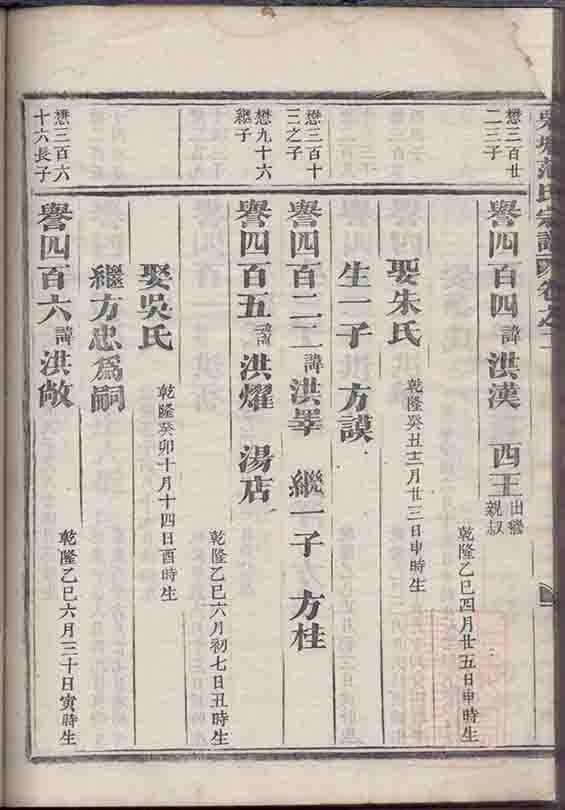 范氏宗譜 卷之二
懋三百廿
二三子
譽四百四 諱 洪漢 西王 出繼
親叔
乾隆乙巳四月廿五日申時生
娶朱氏 乾隆癸丑十二月廿三日申時生
生一子 方謨
懋三百十
三之子
譽四百二二 諱 洪睪 繼一子 方桂
懋九十六
繼子
譽四百五 諱 洪耀 湯店
乾隆乙巳六月初七日丑時生
娶吳氏 乾隆癸卯十月十四日酉時生
繼方忠爲嗣
懋三百六
十六長子
譽四百六 諱 洪敞
乾隆乙巳六月三十日寅時生